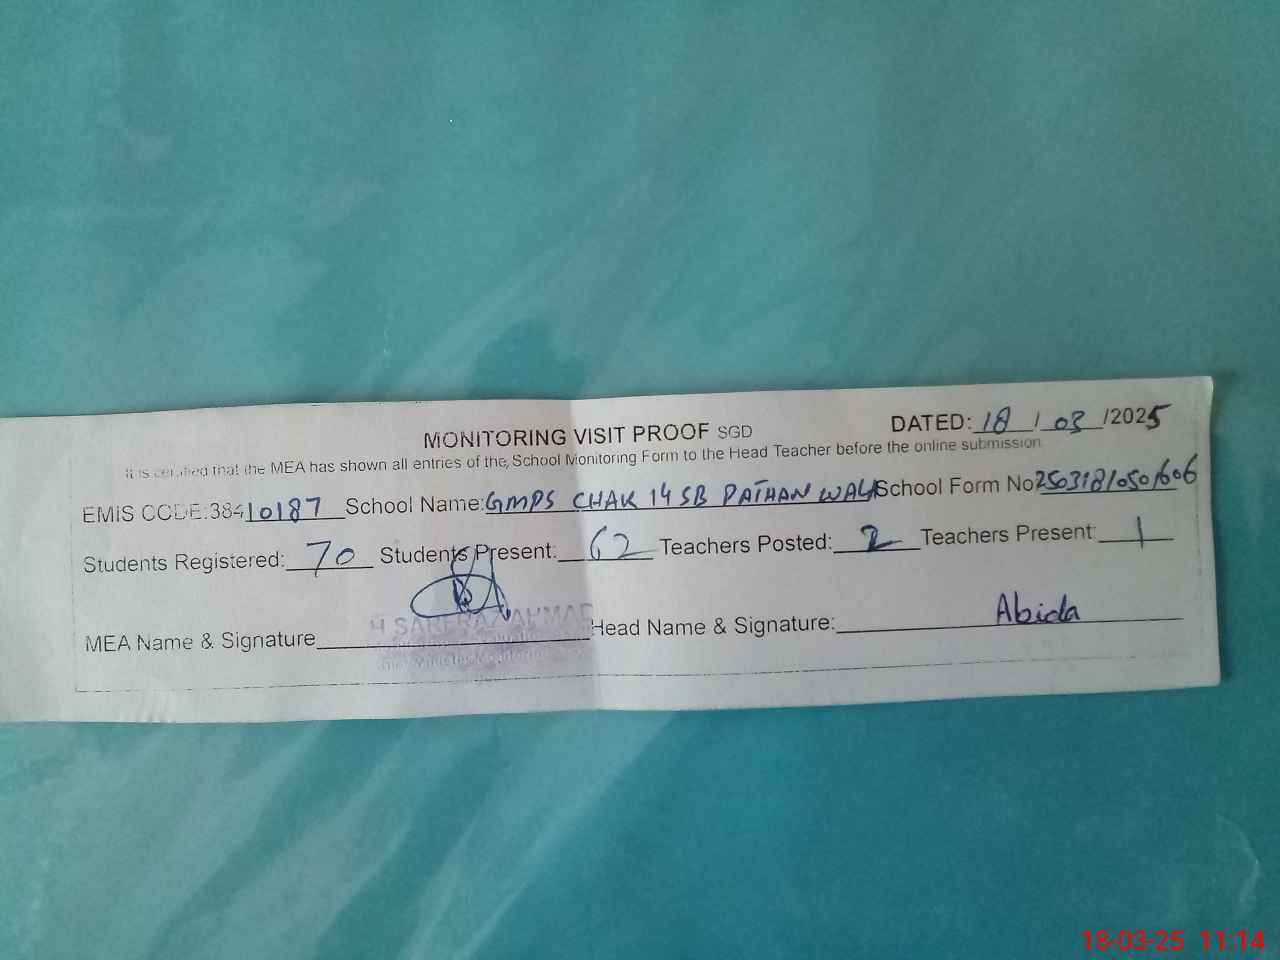 DATED: 18 / 03 /2025
MONITORING VISIT PROOF SGD
It is certified that the MEA has shown all entries of the School Monitoring Form to the Head Teacher before the online submission
EMIS CODE:38410187 School Name: GMPS CHAK 14 SB PATHAN WALA School Form No 25031810501606
Students Registered: 70 Students Present: 62 Teachers Posted: 2 Teachers Present: 1
MEA Name & Signature SARFRAZ AHMAD Head Name & Signature: Abida
18-03-25 11:14